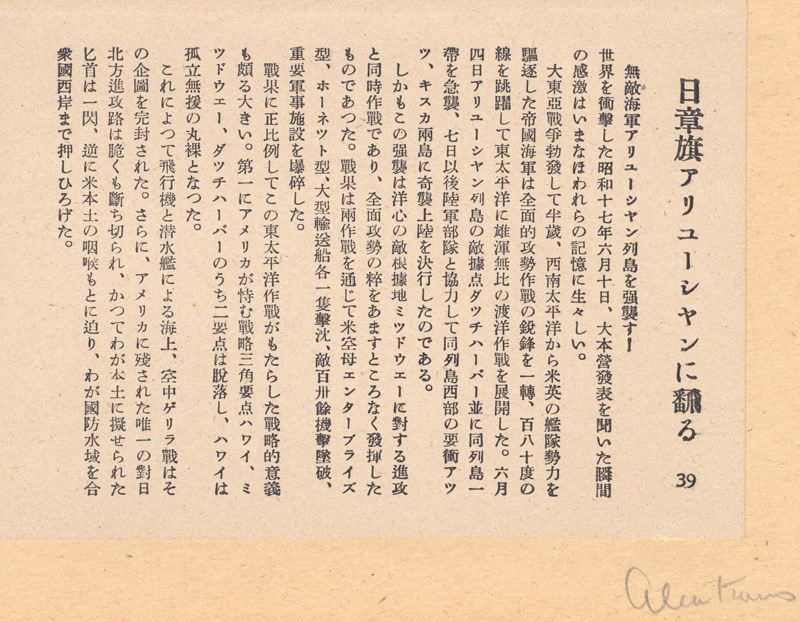 日章旗アリューシヤンに飜る 39
無敵海軍アリユーシヤン列島を强襲す!
世界を衝擊した昭和十七年六月十日、大本營發表を聞いた瞬間
の感激はいまなほわれらの記憶に生々しい。
大東亞戰爭勃發して半歲、西南太平洋から米英の艦隊勢力を
驅逐した帝國海軍は全面的攻勢作戰の銳鋒を一轉、百八十度の
線を跳躍して東太平洋に雄渾無比の渡洋作戰を展開した。六月
四日アリユーシヤン列島の敵據點ダツチハーバー並に同列島一
帶を急襲、七日以後陸軍部隊と協力して同列島西部の要衝アツ
ツ、キスカ兩島に奇襲上陸を決行したのである。
しかもこの强襲は洋心の敵根據地ミツドウエーに對する進攻
と同時作戰であり、全面攻勢の粹をあますところなく發揮した
ものであつた。戰果は兩作戰を通じて米空母エンタープライズ
型、ホーネツト型、大型輸送船各一隻擊沈、敵百卅餘機擊墜破、
重要軍事施設を爆碎した。
戰果に正比例してこの東太平洋作戰がもたらした戰略的意義
も頗る大きい。第一にアメリカが恃む戰略三角要点ハワイ、ミ
ツドウエー、ダツチハーバーのうち二要点は脫落し、ハワイは
孤立無援の丸裸となつた。
これによつて飛行機と潜水艦による海上、空中ゲリラ戰はそ
の企圖を完封された。さらに、アメリカに殘された唯一の對日
北方進攻路は脆くも斷ち切られ、かつてわが本土に擬せられた
匕首は一閃、逆に米本土の咽喉もとに迫り、わが國防水域を合
衆國西岸まで押しひろげた。